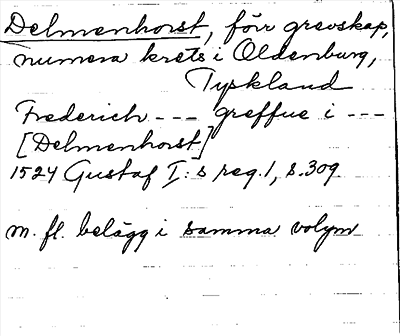 Delmenhorst, förr grevskap,
numera krets i Oldenburg,
Tyskland
Frederich --- greffue i ---
[Delmenhorst]
1524 Gustaf I:s reg. 1, s. 309
m. fl. belägg i samma volym